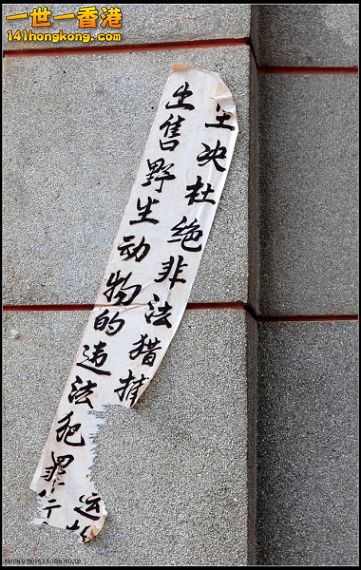 一世一香港
141hongkong.com
坚决杜绝非法猎捕 运
出售野生动物的违法犯罪行